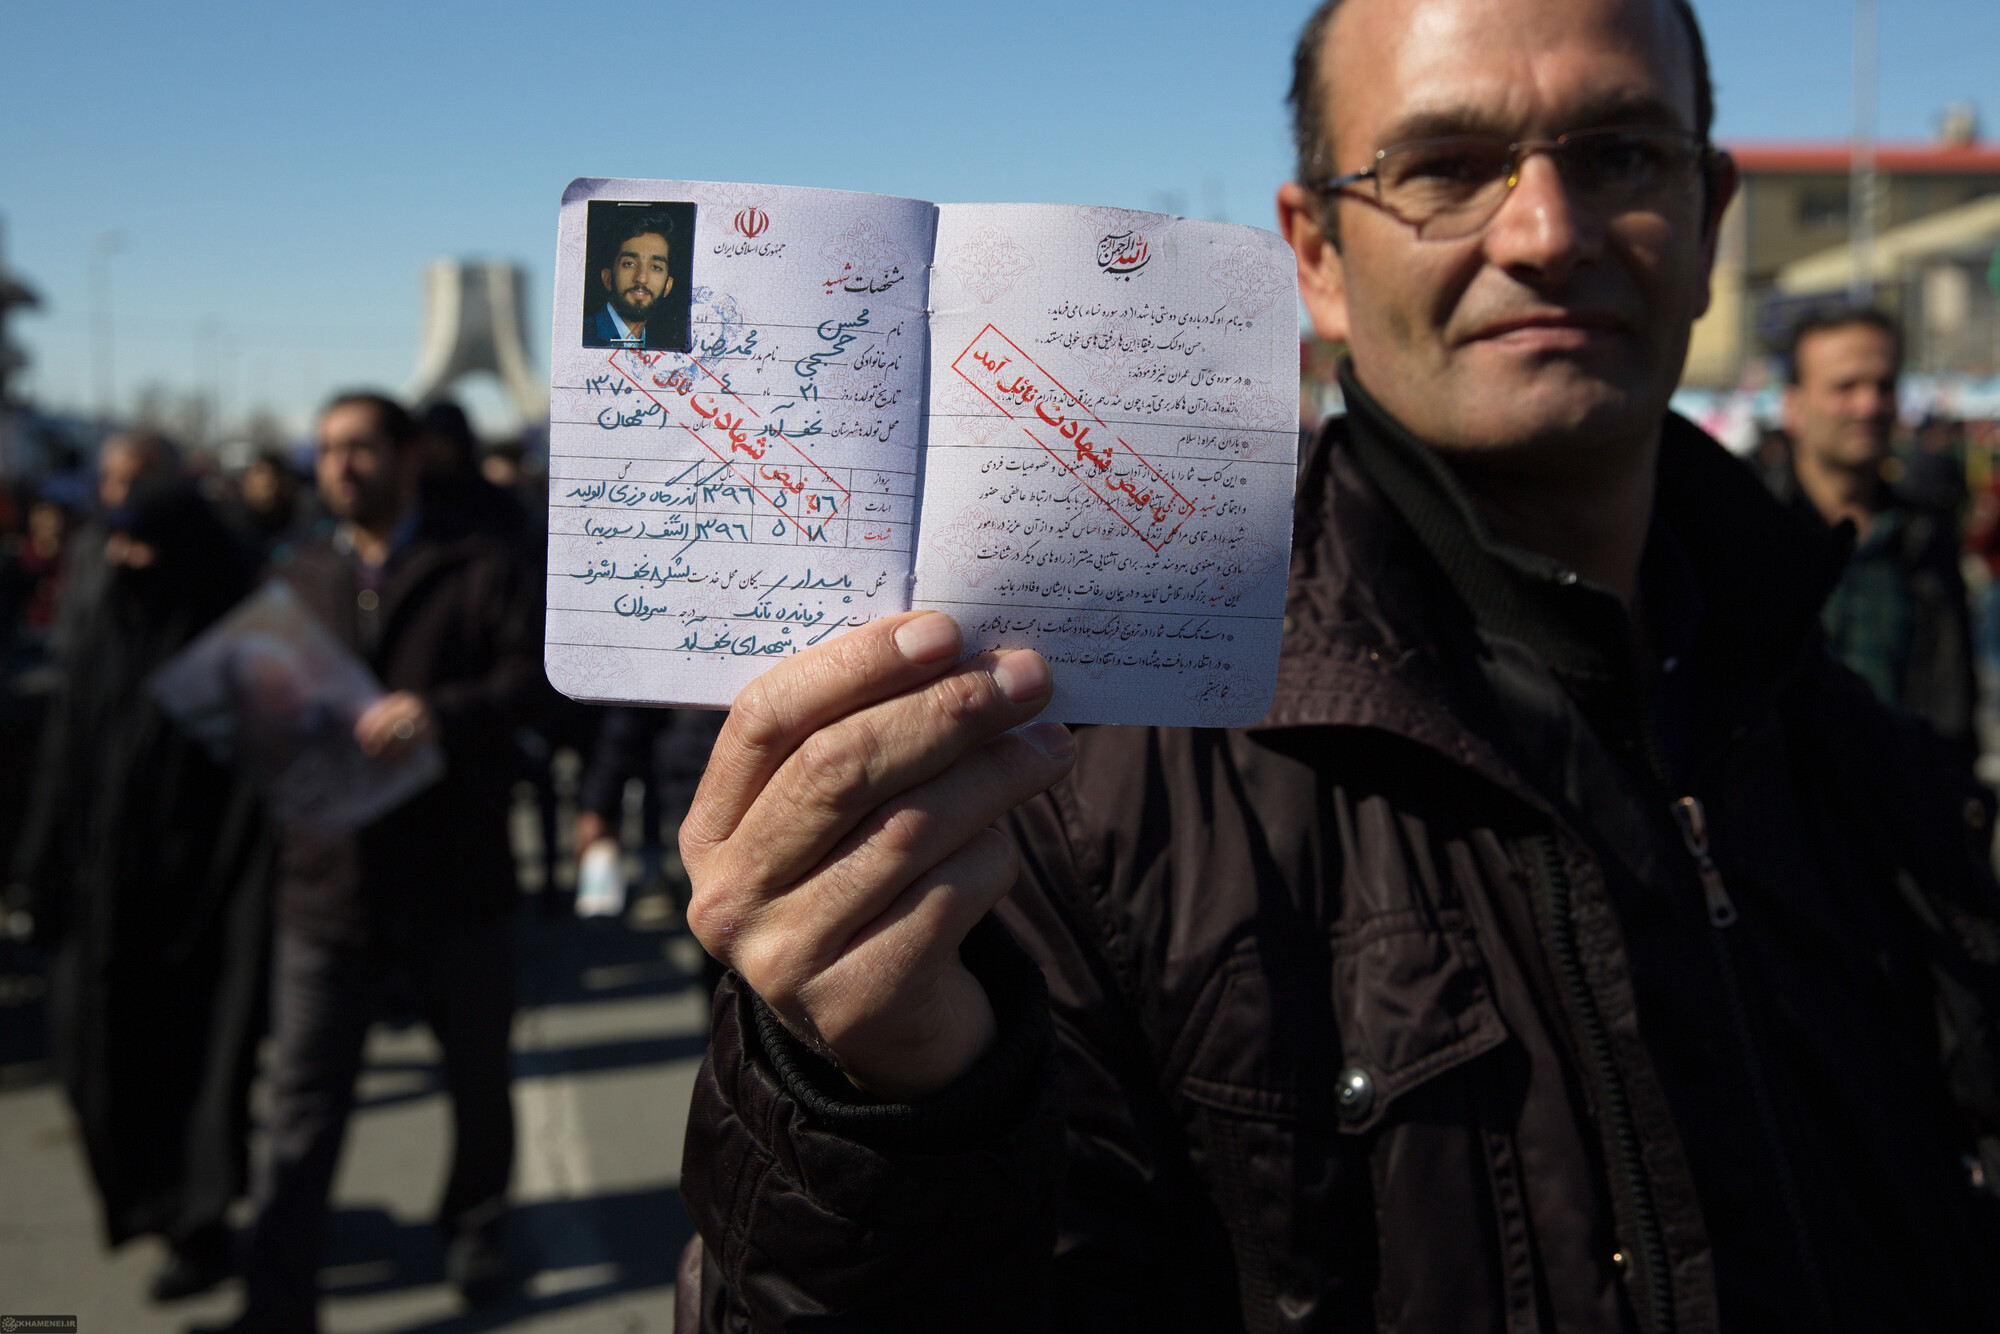 جمهوری اسلامی ایران
مشخصات شهید
نام محسن
نام خانوادگی حججی نام پدر محمدرضا
تاریخ تولد: روز ۲۱ ماه ۴ ۱۳۷۰
محل تولد: شهرستان نجف آباد استان اصفهان
پرواز روز سال محل
اسارت ۱۶ ۵ ۱۳۹۶ گذرگاه مرزی الولید
شهادت ۱۸ ۵ ۱۳۹۶ التنف (سوریه)
شغل پاسدار یگان محل خدمت لشکر ۸ نجف اشرف
فرمانده تانک درجه سروان
شهدای نجف آباد
به فیض شهادت نائل آمد
بسم الله الرحمن الرحیم
* به نام او که درباره‌ی دوستی با شهدا (در سوره نساء) می‌فرماید:
"حسن اولئک رفیقا؛ این‌ها رفیق‌های خوبی هستند."
* در سوره‌ی آل عمران نیز فرمودند:
* یاران همراه! سلام
* این کتاب شما را با برخی از آداب معنوی و خصوصیات فردی
و اجتماعی شهید با یک ارتباط عاطفی، حضور
شهید را در تمامی مراحل زندگی در کنار خود احساس کنید و از آن عزیز در امور
مادی و معنوی بهره‌مند شوید. برای آشنایی بیشتر از راه‌های دیگر در شناخت
این شهید بزرگوار تلاش نمایید و در پیمان رفاقت با ایشان وفادار بمانید.
* دست تک تک شما را در ترویج فرهنگ جهاد و شهادت با محبت می‌فشاریم.
* در انتظار دریافت پیشنهادات و انتقادات سازنده
شما هستیم
به فیض شهادت نائل آمد
KHAMENEI.IR